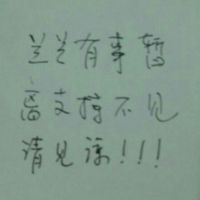 兰兰有事暂
离文掉不见
请见谅!!!